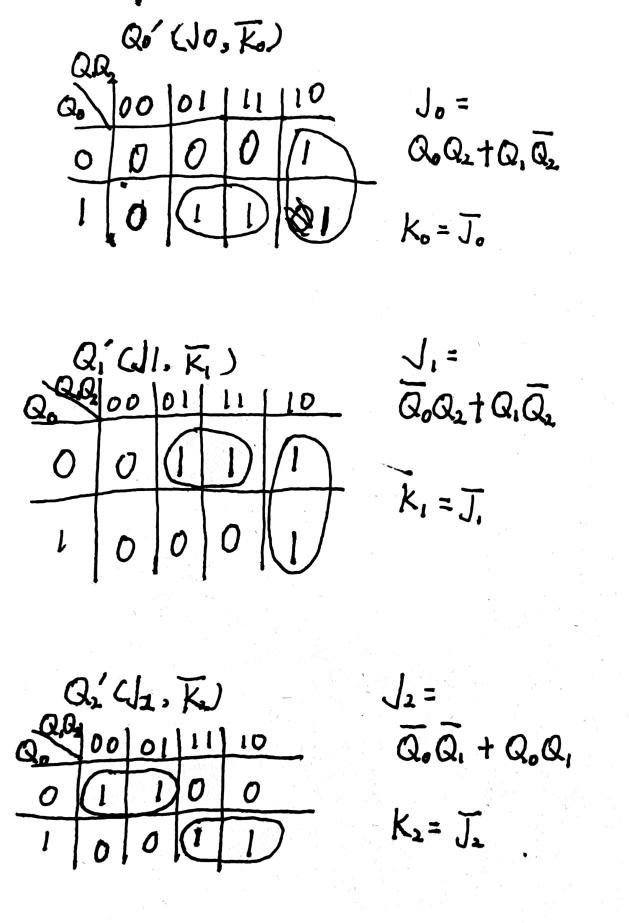 Q₀′ (J0, K̅₀)
Q₁Q₂
Q₀ 00 01 11 10
0 0 0 0 1
1 0 1 1 1
J₀ =
Q₀Q₂ + Q₁Q̅₂
K₀ = J̅₀
Q₁′ (J1, K̅₁)
Q₁Q₂
Q₀ 00 01 11 10
0 0 1 1 1
1 0 0 0 1
J₁ =
Q̅₀Q₂ + Q₁Q̅₂
K₁ = J̅₁
Q₂′ (J₂, K̅₂)
Q₁Q₂
Q₀ 00 01 11 10
0 1 1 0 0
1 0 0 1 1
J₂ =
Q̅₀Q̅₁ + Q₀Q₁
K₂ = J̅₂